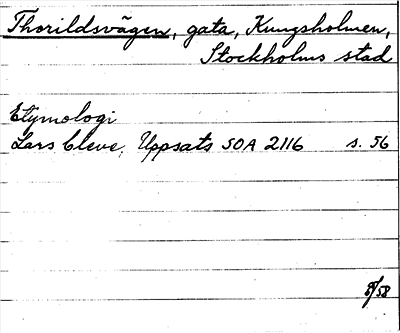 Thorildsvägen, gata, Kungsholmen,
Stockholms stad
Etymologi
Lars Cleve, Uppsats SOA 2116 s. 56
8/58